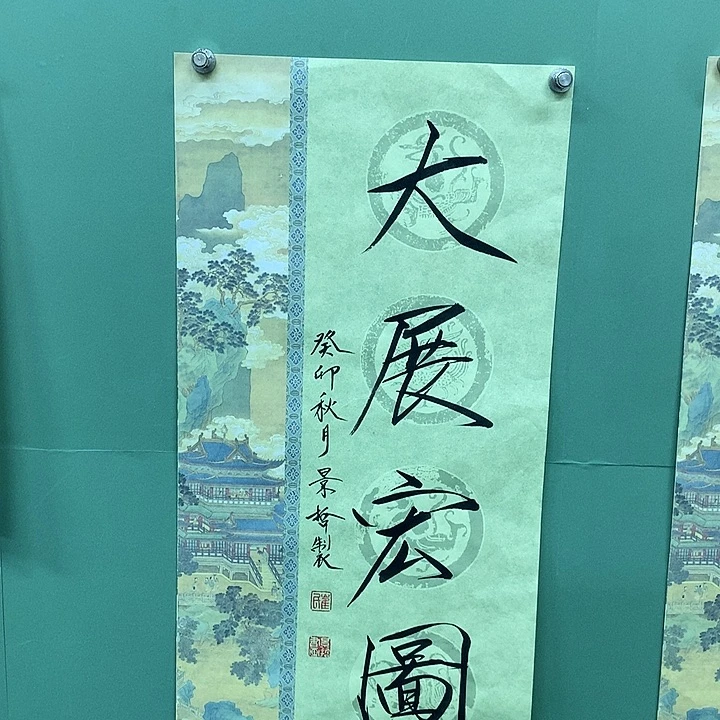 大展宏圖
癸卯秋月景哲製